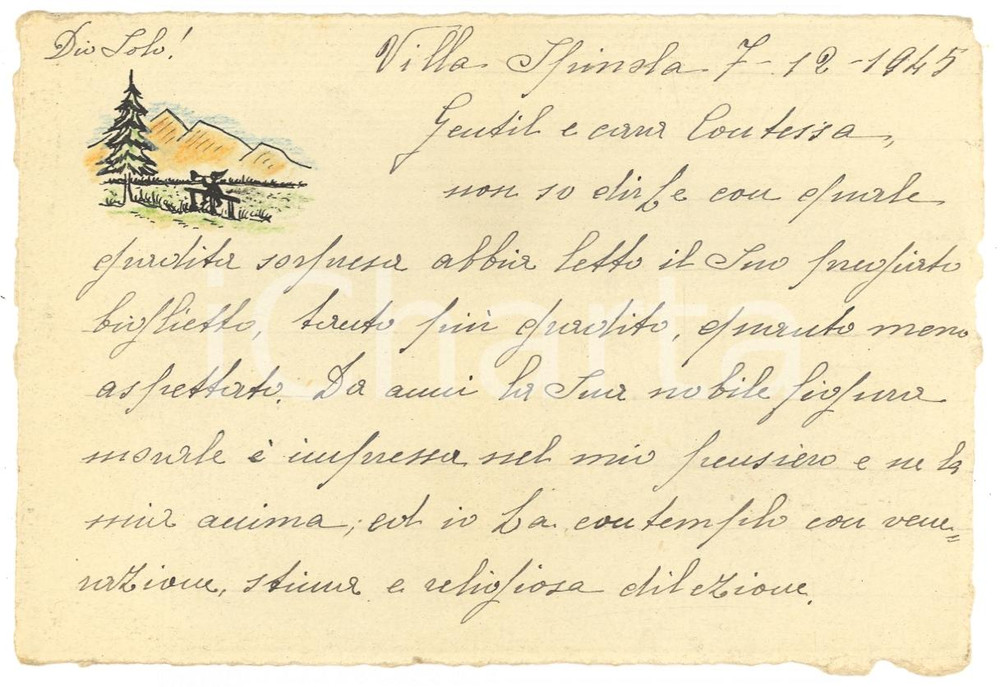 Dio Solo!
Villa Spinola 7-12-1945
Gentil e cara Contessa,
non so dirLe con quale
gradita sorpresa abbia letto il Suo pregiato
biglietto, tanto più gradito, quanto meno
aspettato. Da anni la Sua nobile figura
morale è impressa nel mio pensiero e ne la
mia anima, ed io La contemplo con vene=
razione, stima e religiosa dilezione.
iCharta